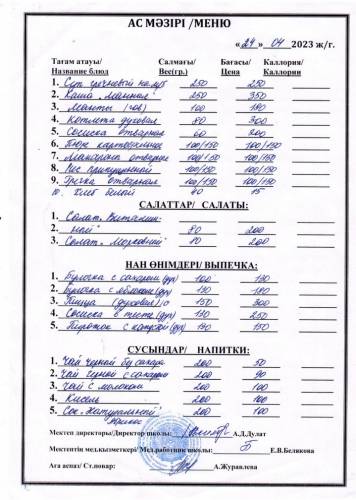 АС МӘЗІРІ /МЕНЮ
« 24 » 04 2023 ж/г.
Тағам атауы/ Салмағы/ Бағасы/ Каллория/
Название блюд Вес(гр.) Цена Каллории
1. Суп гречневый 250 250
2. Каша „манная" 250 350
3. Манты 100 180
4. Котлета духовая 80 300
5. Сосиска отварная 60 200
6. Пюре картофельное 100/150 100/150
7. Макароны отварные 100/150 100/150
8. Рис припущенный 100/150 100/150
9. Гречка отварная 100/150 100/150
10. Хлеб белый 40 15
САЛАТТАР/ САЛАТЫ:
1. Салат. Витамин-
2. ный" 80 200
3. Салат. Морковный 80 200
НАН ӨНІМДЕРІ/ ВЫПЕЧКА:
1. Булочка с сахаром (дух) 100 130
2. Булочка с яблоком (дух) 130 180
3. Пицца (духовая) 150 300
4. Сосиска в тесте (дух) 130 250
5. Пирожок с капустой (дух) 130 150
СУСЫНДАР/ НАПИТКИ:
1. Чай черный без сахара 200 50
2. Чай черный с сахаром 200 90
3. Чай с молоком 200 100
4. Кисель 200 100
5. Сок „Натуральный" 200 100
Мектеп директоры/Директор школы: А.Д.Дулат
Мектептін мед.қызметкері/ Мед.работник школы: Е.В.Белякова
Аға аспаз/ Ст.повар: А.Журавлева